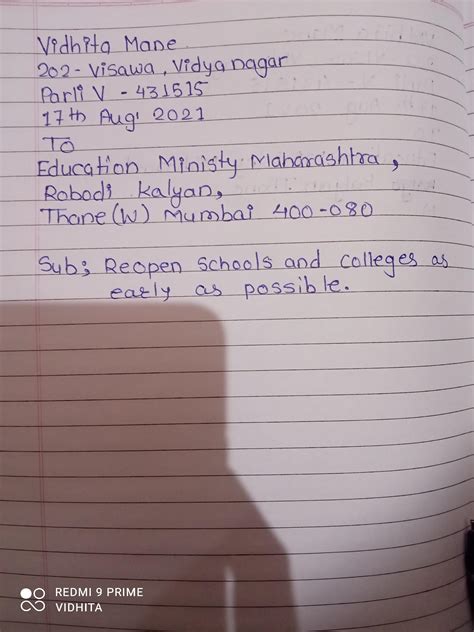 Vidhita Mane
202- Visawa, Vidyanagar
Parli V - 431515
17th Aug' 2021
To
Education Ministy Maharashtra,
Robodi Kalyan,
Thane (W) Mumbai 400-080
Sub; Reopen schools and colleges as
early as possible.
REDMI 9 PRIME
VIDHITA